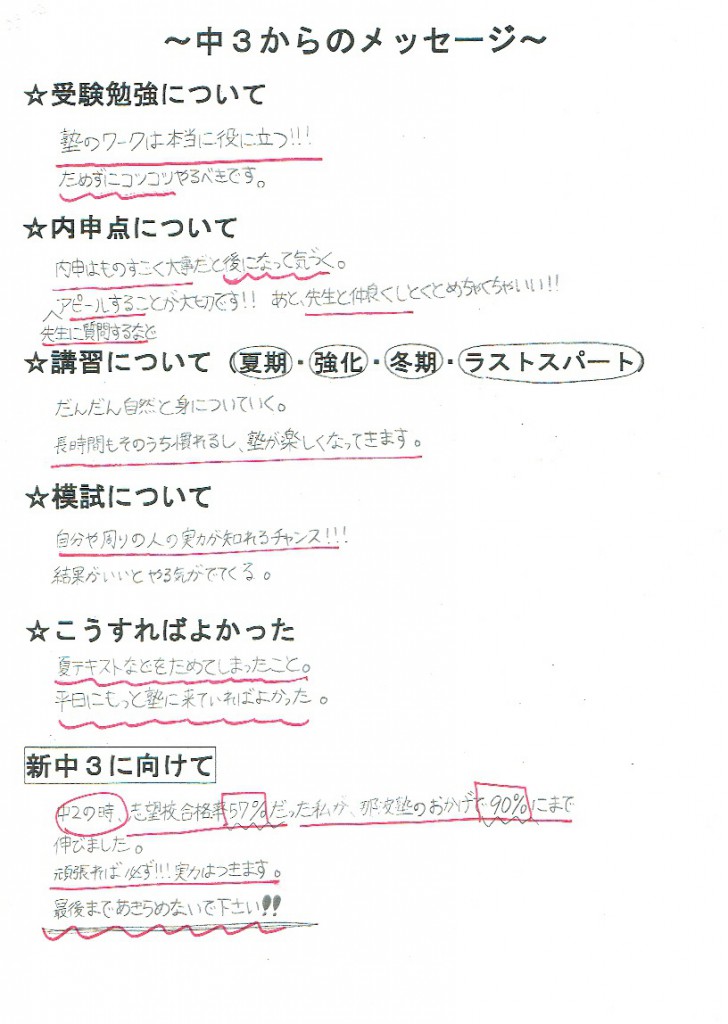 ～中３からのメッセージ～
☆受験勉強について
塾のワークは本当に役に立つ!!!
ためずにコツコツやるべきです。
☆内申点について
内申はものすごく大事だと後になって気づく。
アピールすることが大切です!! あと、先生と仲良くしとくとめちゃくちゃいい!!
先生に質問するなど
☆講習について（夏期・強化・冬期・ラストスパート）
だんだん自然と身についていく。
長時間もそのうち慣れるし、塾が楽しくなってきます。
☆模試について
自分や周りの人の実力が知れるチャンス!!!
結果がいいとやる気がでてくる。
☆こうすればよかった
夏テキストなどをためてしまったこと。
平日にもっと塾に来ていればよかった。
新中３に向けて
中2の時、志望校合格率57%だった私が、那波塾のおかげで90%にまで
伸びました。
頑張れば必ず!!!実力はつきます。
最後まであきらめないで下さい!!